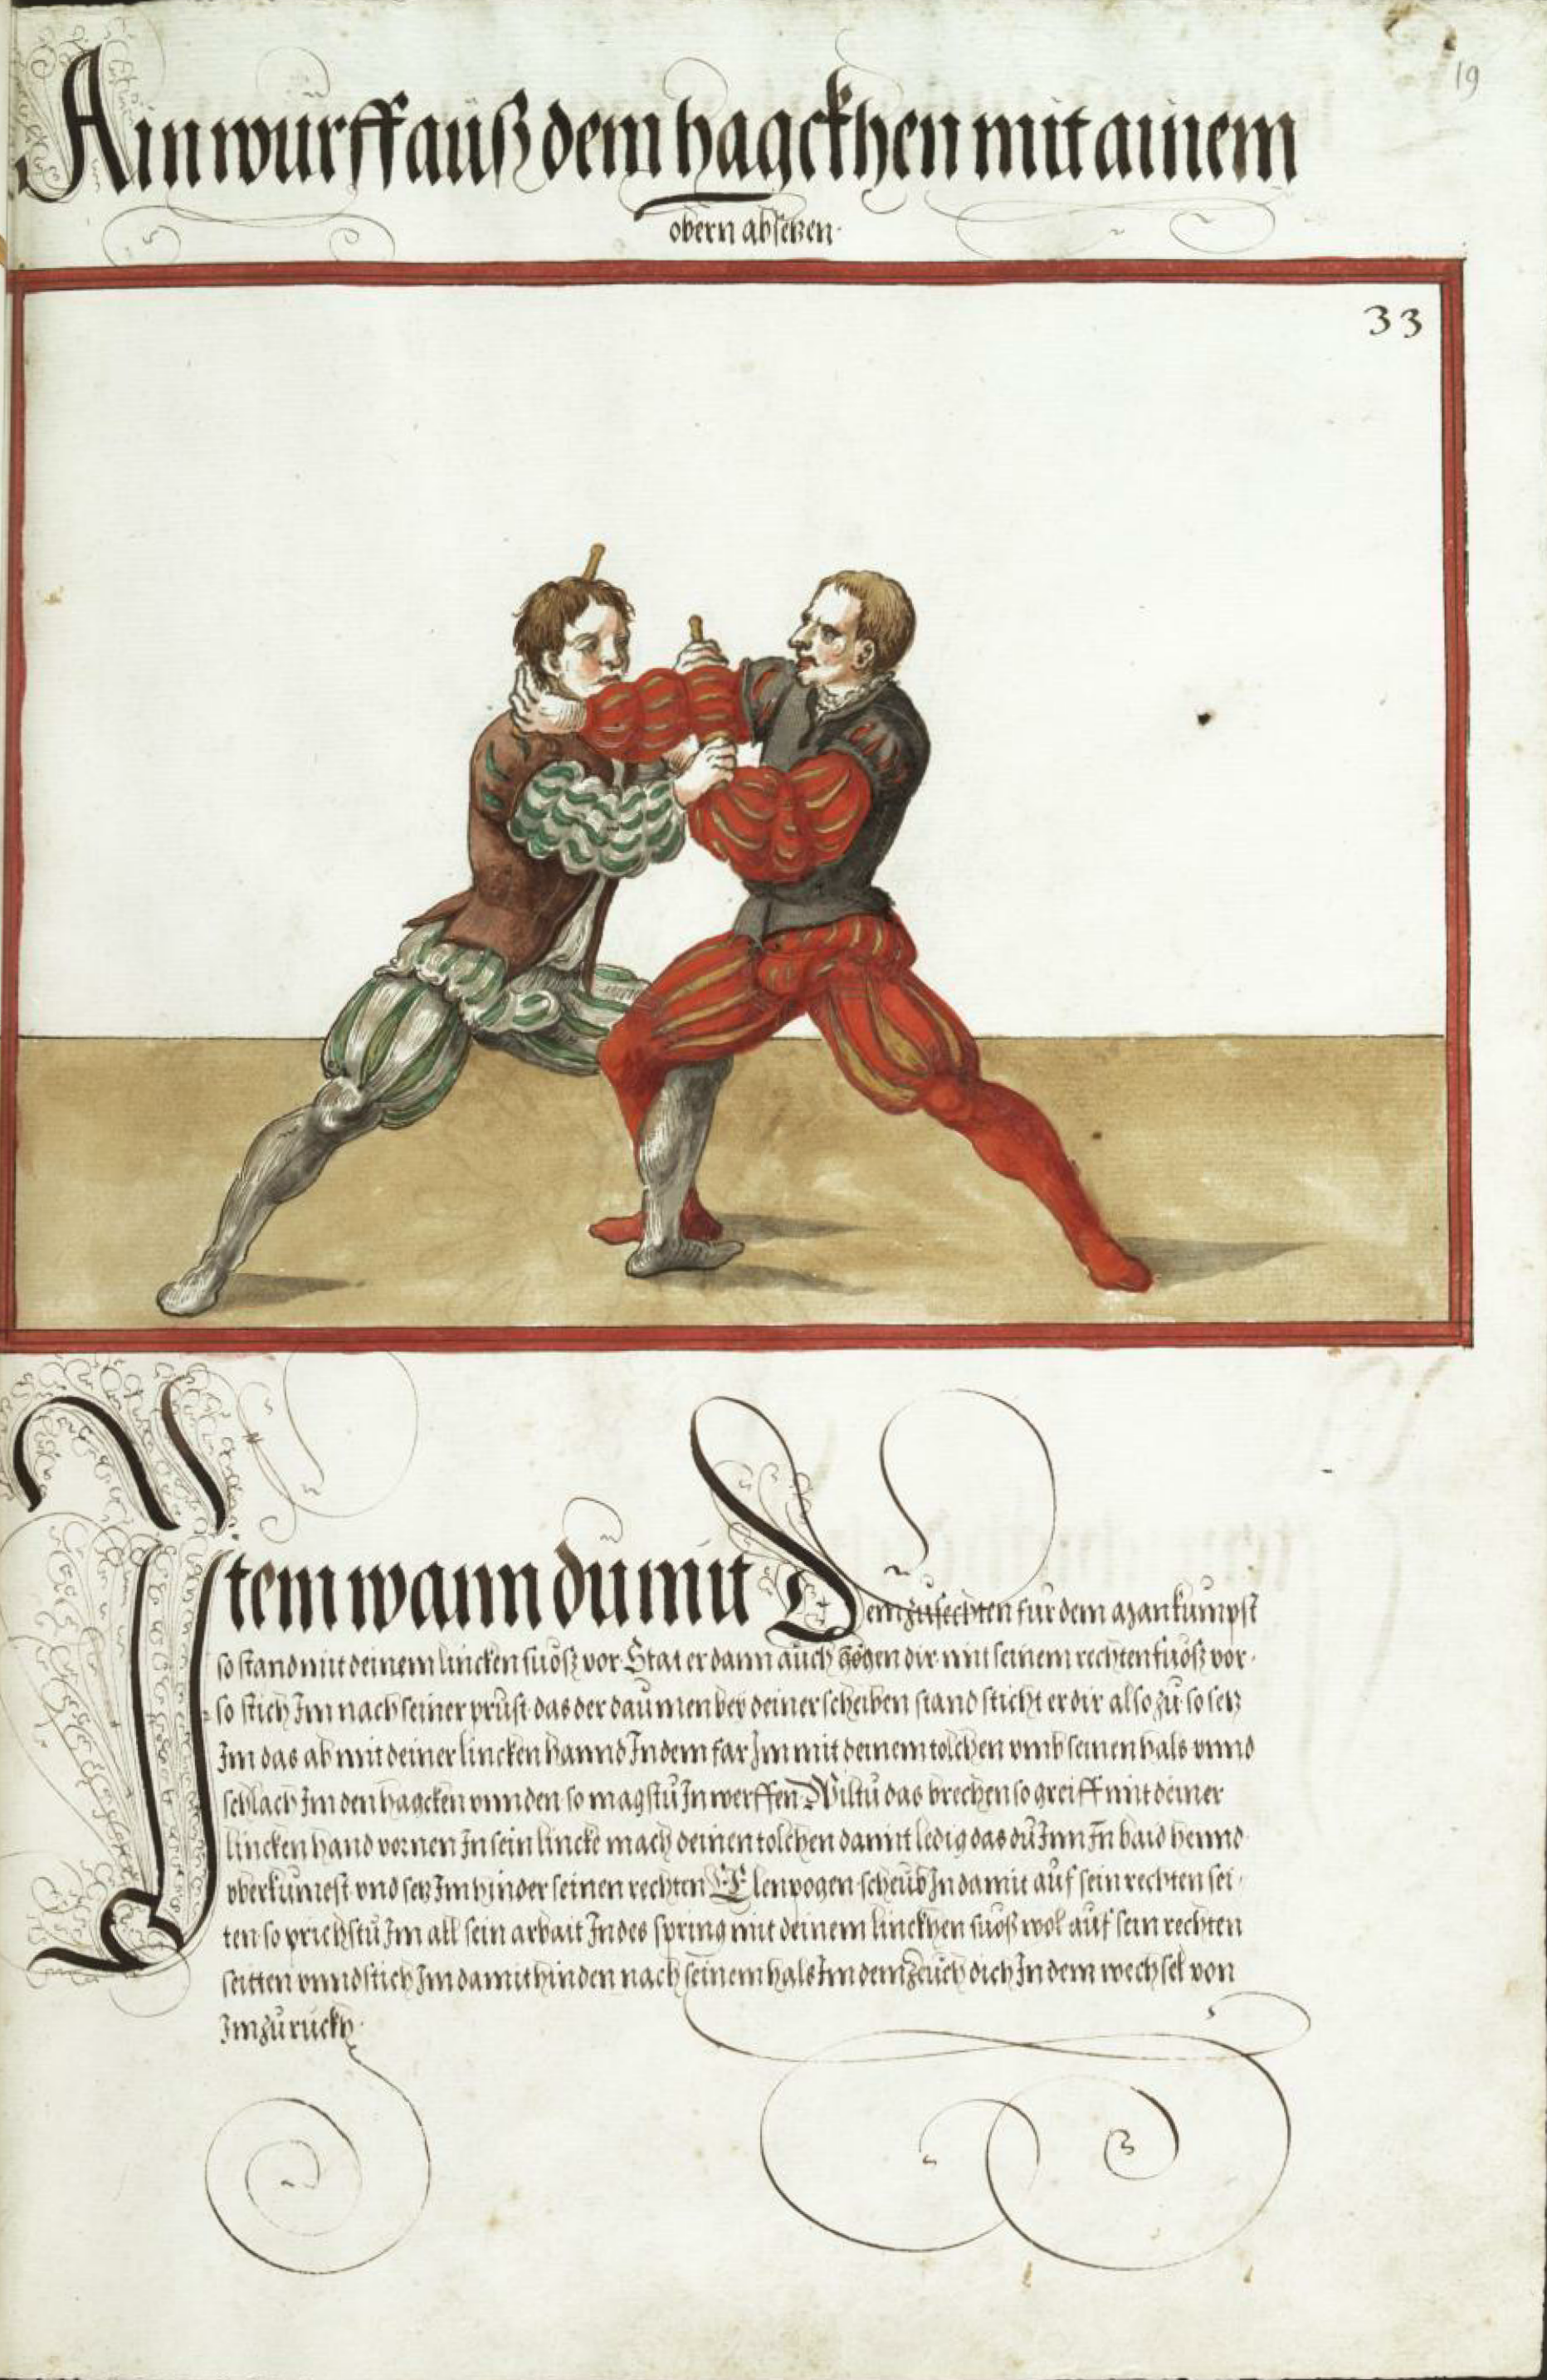 19
Ain wurff auß dem hagckhen mit ainem
obern absetzen.
33
Item wann dü mit Dem züfechten für den man kumpst
so stand mit deinem lincken füoß vor Stat er dann auch gögen dir mit seinem rechten füoß vor.
so stich Im nach seiner prüst das der daumen bey deiner scheiben stand sticht er dir also zü so setz
Im das ab mit deiner lincken hannd In dem far Im mit deinem tolchen vmb seinen hals vnnd
schlach Im den haacken vnnden so magstü In werffen Wiltü das brechen so greiff mit deiner
lincken hand vornen In sein lincke mach deinen tolchen damit ledig das dü Inn In baid hennd
vberkumest vnd setz Im hinder seinen rechten Elenpogen scheüb In damit auf sein rechten sei-
ten so prichstü Im all sein arbait Indes spring mit deinem linckhen füoß wol auf sein rechten
seitten vnnd stich Im damit hinden nach seinem hals Im dem zeuch dich In dem wechsel von
Im zürückh.